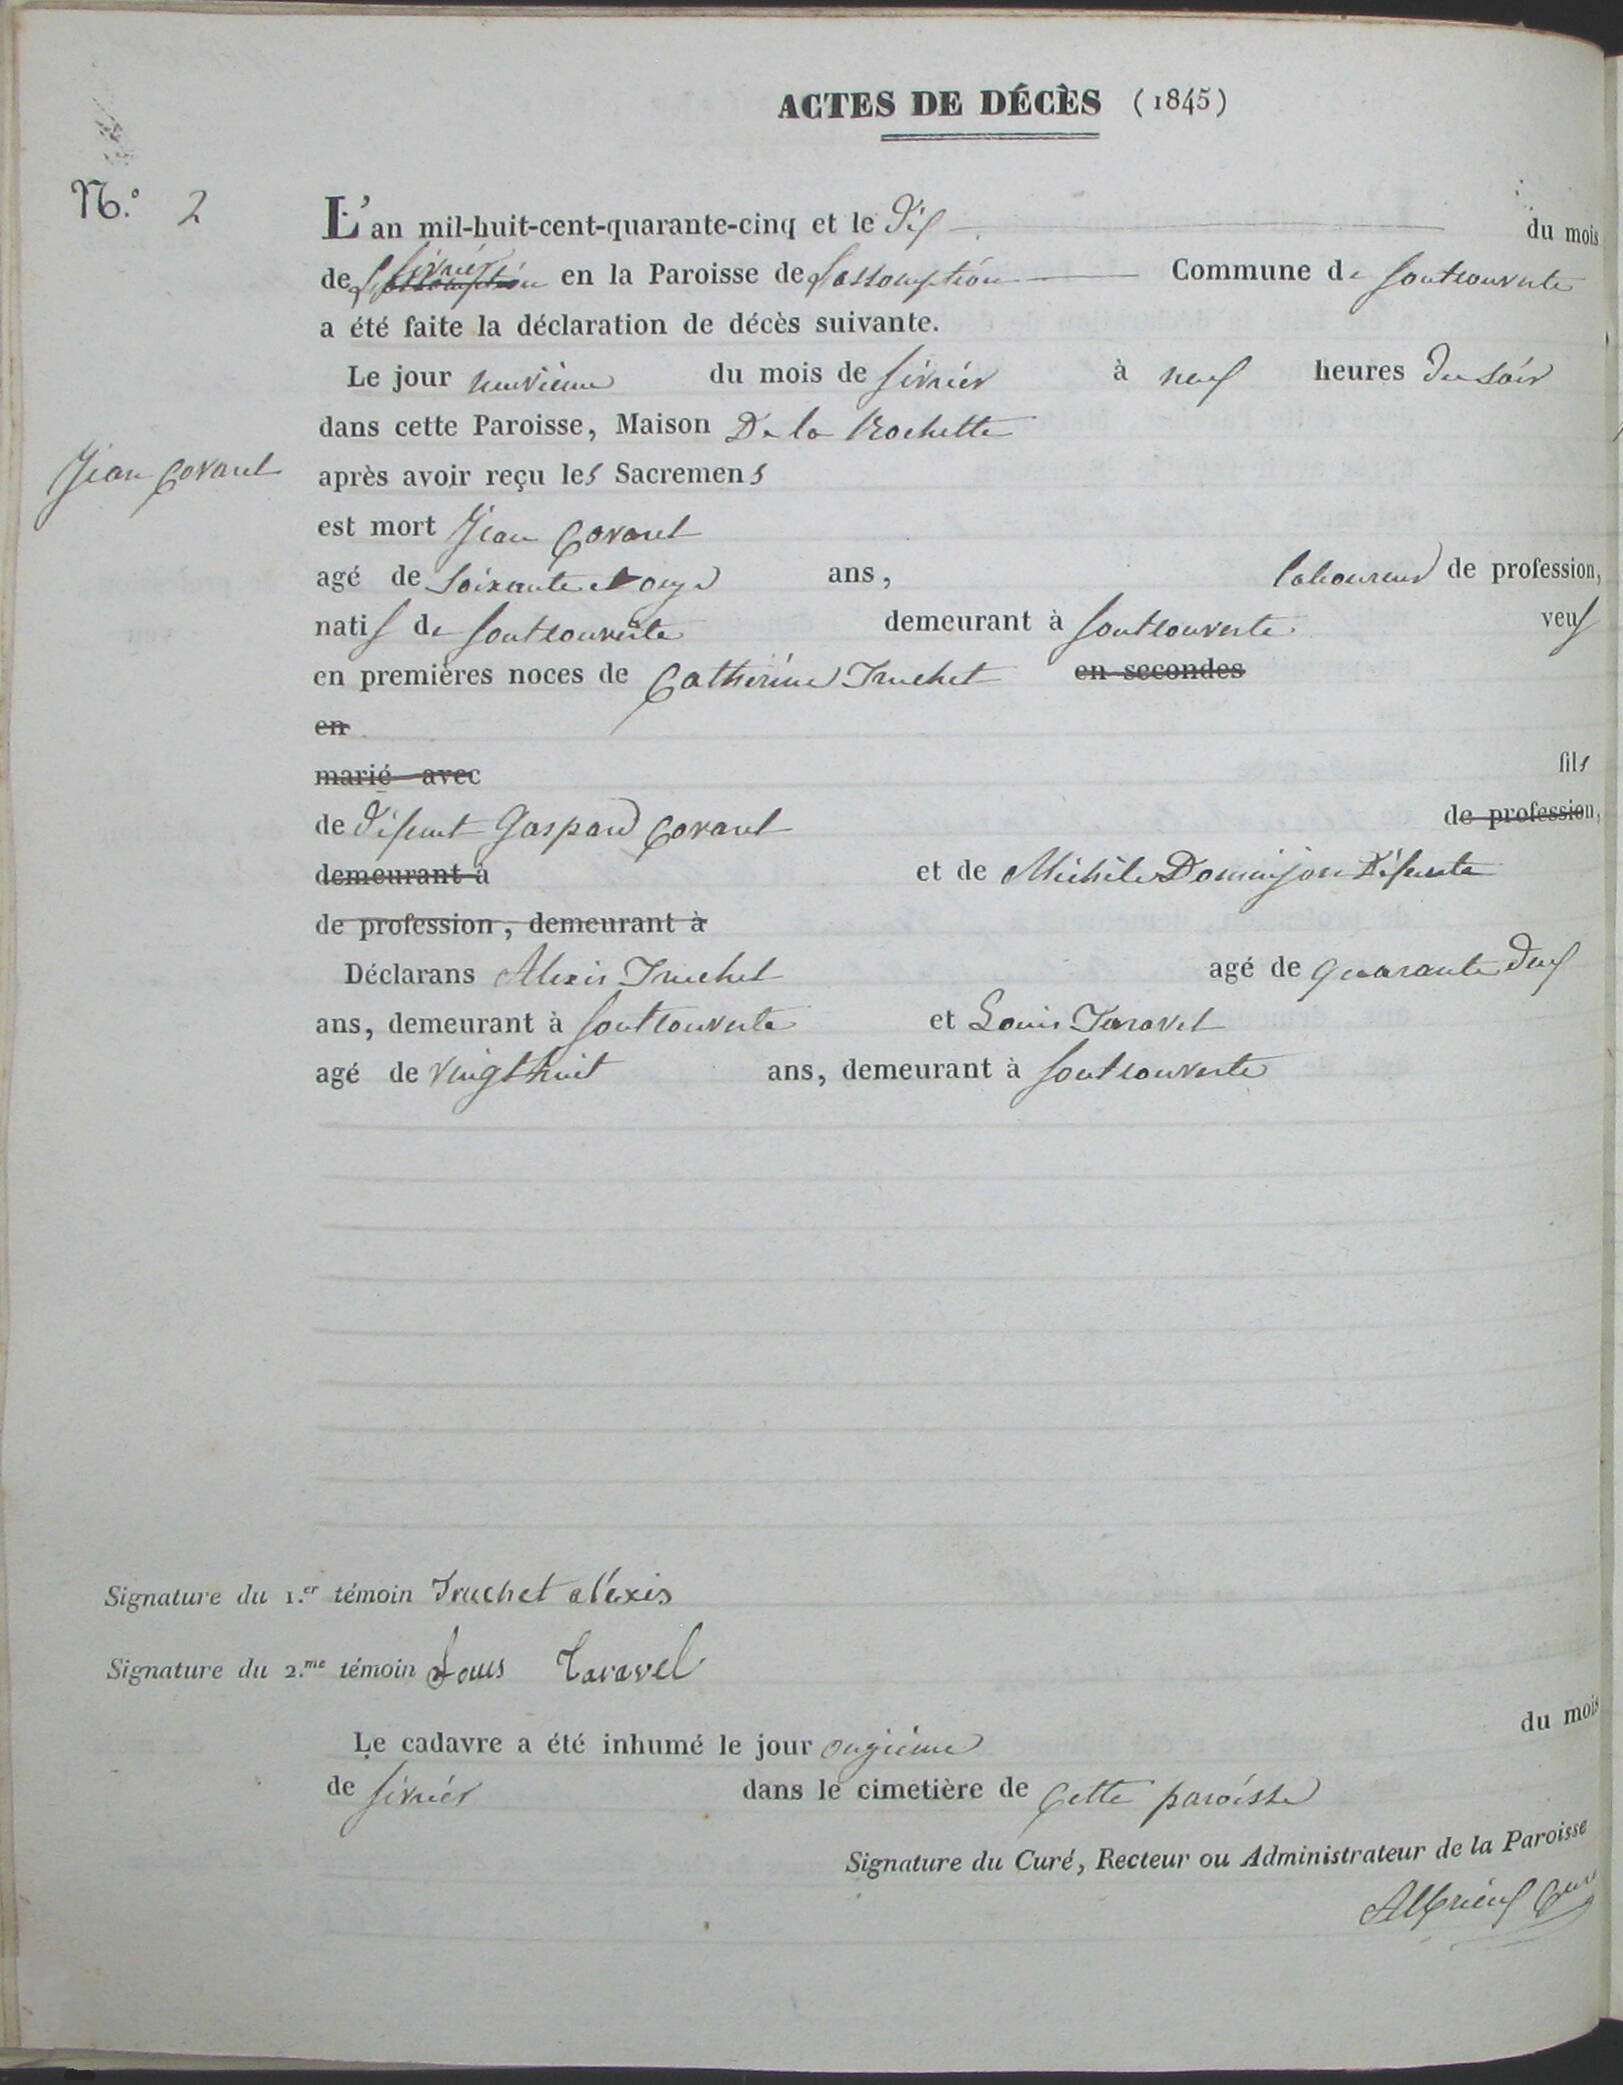 ACTES DE DÉCÈS (1845)
N.° 2
L'an mil-huit-cent-quarante-cinq et le Dix du mois
de L'assomption février en la Paroisse de L'assomption Commune de fontcouverte
a été faite la déclaration de décès suivante.
Le jour neuvieme du mois de février à neuf heures du soir
dans cette Paroisse, Maison De la Rochette
Jean Covarel
après avoir reçu les Sacremens
est mort Jean Covarel
agé de soixante et onze ans, laboureur de profession,
natif de fontcouverte demeurant à fontcouverte veuf
en premières noces de Catherine Truchet en secondes
en
marié avec fils
de défunt Gaspard Covarel de profession,
demeurant à et de Michele Domenjon défunte
de profession, demeurant à
Déclarans Alexis Truchet agé de quarante deux
ans, demeurant à fontcouverte et Louis Taravel
agé de vingt huit ans, demeurant à fontcouverte
Signature du 1.er témoin Truchet alexis
Signature du 2.me témoin Louis Taravel
Le cadavre a été inhumé le jour onzieme du mois
de février dans le cimetière de Cette paroisse
Signature du Curé, Recteur ou Administrateur de la Paroisse
Curé